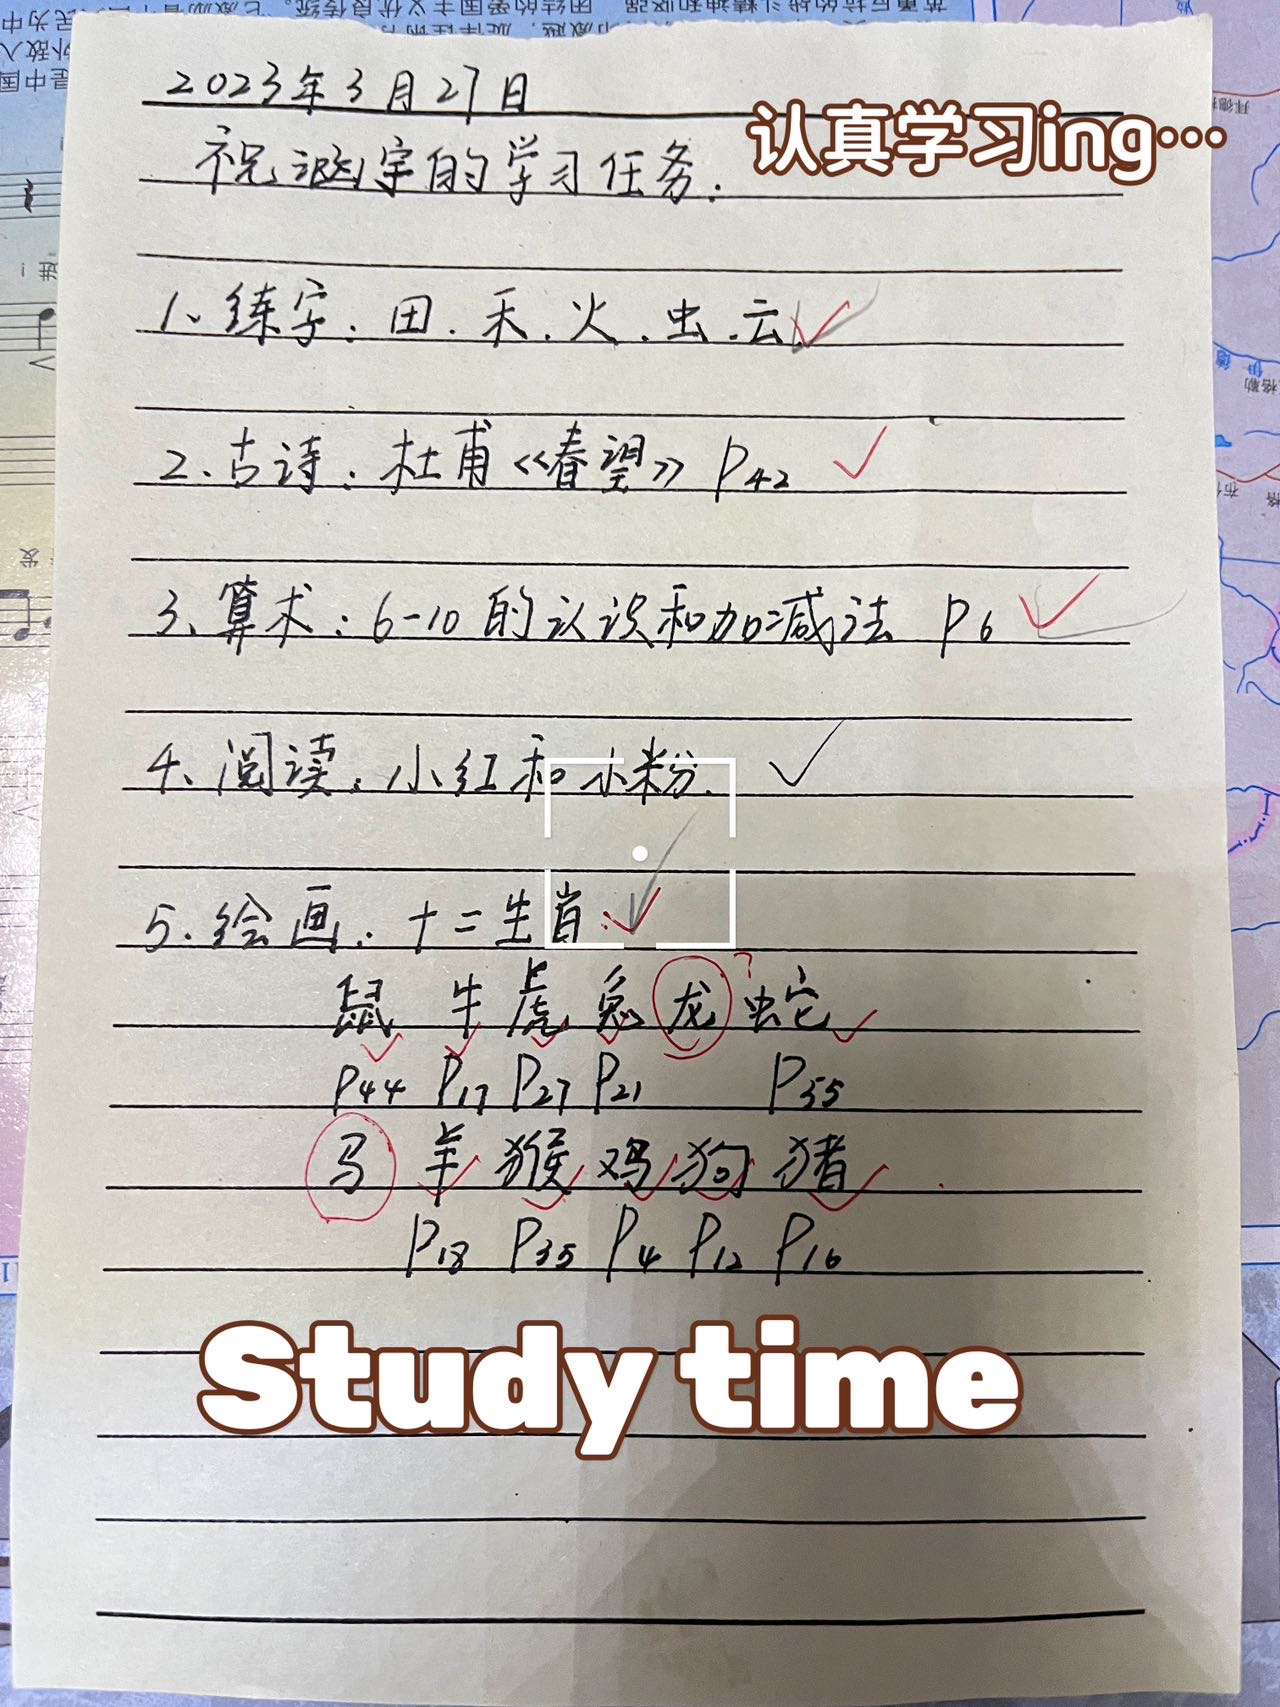 2023年3月27日
认真学习ing…
祝涵宇的学习任务.
1、练字. 田. 禾. 火. 虫. 云.
2. 古诗: 杜甫《春望》 P42
3、算术: 6-10的认识和加减法 P6
4、阅读: 小红和小粉.
5. 绘画. 十二生肖.
鼠 牛 虎 兔 龙 ? 蛇
P44 P17 P27 P21 P35
马 羊 猴 鸡 狗 猪
P18 P35 P4 P12 P16
Study time